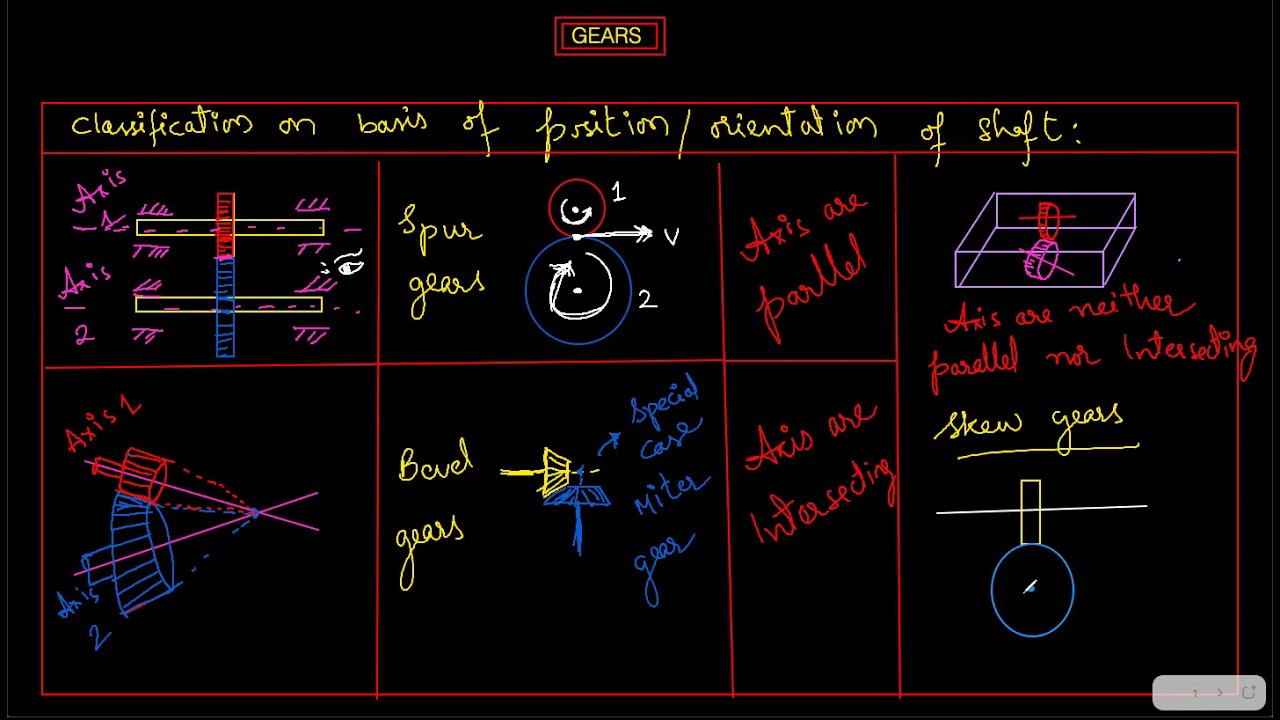 GEARS
Classification on basis of position/orientation of shaft:
Axis
1
Axis
2
Spur
gears
1
V
2
Axis are
parllel
Axis are neither
parallel nor Intersecting
Skew gears
Axis 1
Axis
2
Bevel
gears
Special
case
Miter
gear
Axis are
Intersecting
1